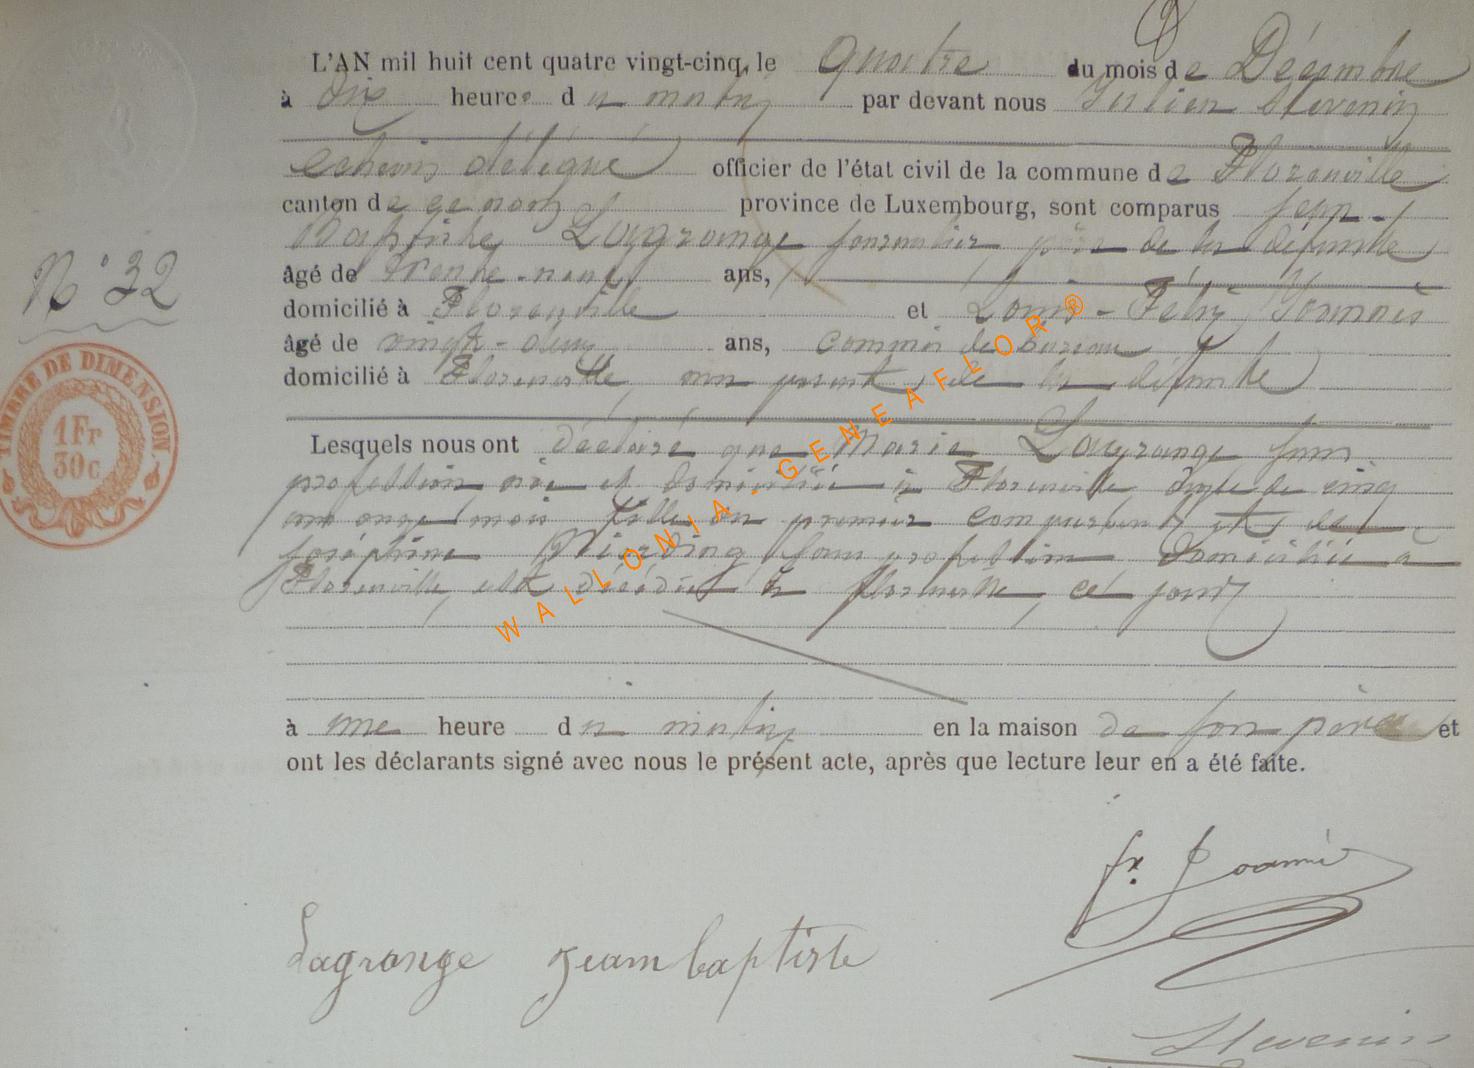 L'AN mil huit cent quatre vingt-cinq, le quatre du mois de Décembre
à dix heures du matin par devant nous Stevenin
échevin délégué officier de l'état civil de la commune de Florenville
canton de province de Luxembourg, sont comparus Jean-
Baptiste Lagrange journalier, père de la défunte
âgé de trente-neuf ans,
domicilié à Florenville et Louis-Félix Joannès
âgé de vingt-deux ans, commis de bureau
domicilié à Florenville, non parent, de la défunte
Lesquels nous ont déclaré que Marie Lagrange sans
profession née et domiciliée à Florenville âgée de cinq
ans onze mois fille du premier comparant et de
Joséphine sans profession domiciliée à
Florenville, est décédée à Florenville, ce jour
à une heure du matin en la maison de son père et
ont les déclarants signé avec nous le présent acte, après que lecture leur en a été faite.
N° 32
TIMBRE DE DIMENSION
1 Fr
30c
WALLONIA-GENEAFLOR®
Lagrange jeambaptiste
Stevenin